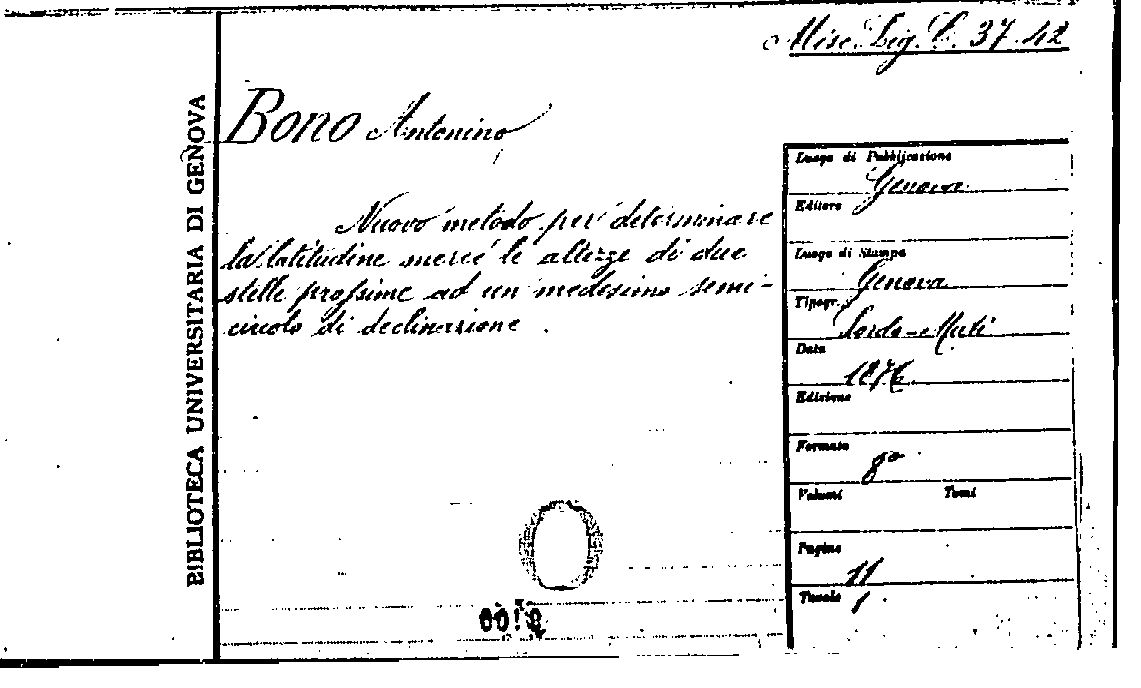 Misc. Lig. C. 37.42
BIBLIOTECA UNIVERSITARIA DI GENOVA
Bono Antonino
Nuovo metodo per determinare
la latitudine mercé le altezze di due
stelle prossime ad un medesimo semi-
circolo di declinazione.
Luogo di Pubblicazione
Genova
Editore
Luogo di Stampa
Genova
Tipogr.
Sordo-Muti
Data
1876
Edizione
Formato
8°
Volumi Tomi
Pagine
11
Tavole 1